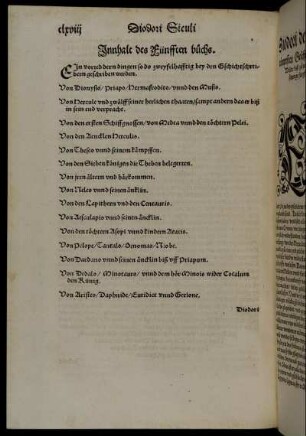 clxviij Diodori Siculi
Innhalt des Fünfften büchs.
EIn vorred deren dingen so do zweyfelhafftig bey den Gschichtschrei-
bern geschriben werden.
Von Dionysio/ Priapo/ Hermafrodito/ vnnd den Musis.
Von Hercole vnd zwölff seiner herlichen thaten/ sampt andern das er biß
in sein end verpracht.
Von den ersten Schiffgnossen/ von Medea vnnd den töchtern Pelei.
Von den Äncklen Herculis.
Von Theseo vnnd seinem kämpffen.
Von den Siben künigen die Theben belegerten.
Von jren ältern vnd härkommen.
Von Neleo vnd seinen äncklin.
Von den Lapithern vnd den Centauris.
Von Aesculapio vnd seinen äncklin.
Von den töchtern Asopi vnnd kindern Aeacis.
Von Pelope/ Tantalo/ Oenomao/ Niobe.
Von Dardano vnnd seinen äncklin biß vff Priamum.
Von Dedalo/ Minotauro/ vnnd dem hör Minois wider Cocalum
den Künig.
Von Aristeo/ Daphnide/ Euridice vnnd Erione.
Diodori